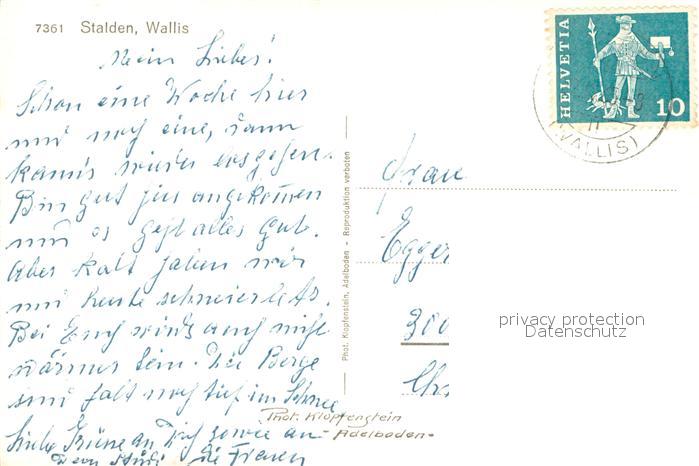 7361 Stalden, Wallis
Mein Liebes!
Schon eine Woche hier
und noch eine, dann
kann's wieder losgehen.
Bin gut hier angekommen
und es geht alles gut.
Aber kalt haben wir
und heute schneierlets.
Bei Euch wird's auch nicht
wärmer sein. Die Berge
sind halt noch tief im Schnee
Liebe Grüsse an Dich sowie an
Deine
Phot. Klopfenstein, Adelboden - Reproduktion verboten
HELVETIA
10
(WALLIS)
Frau
Egger
300
Ch
privacy protection
Datenschutz
Phot. Klopfenstein
Adelboden